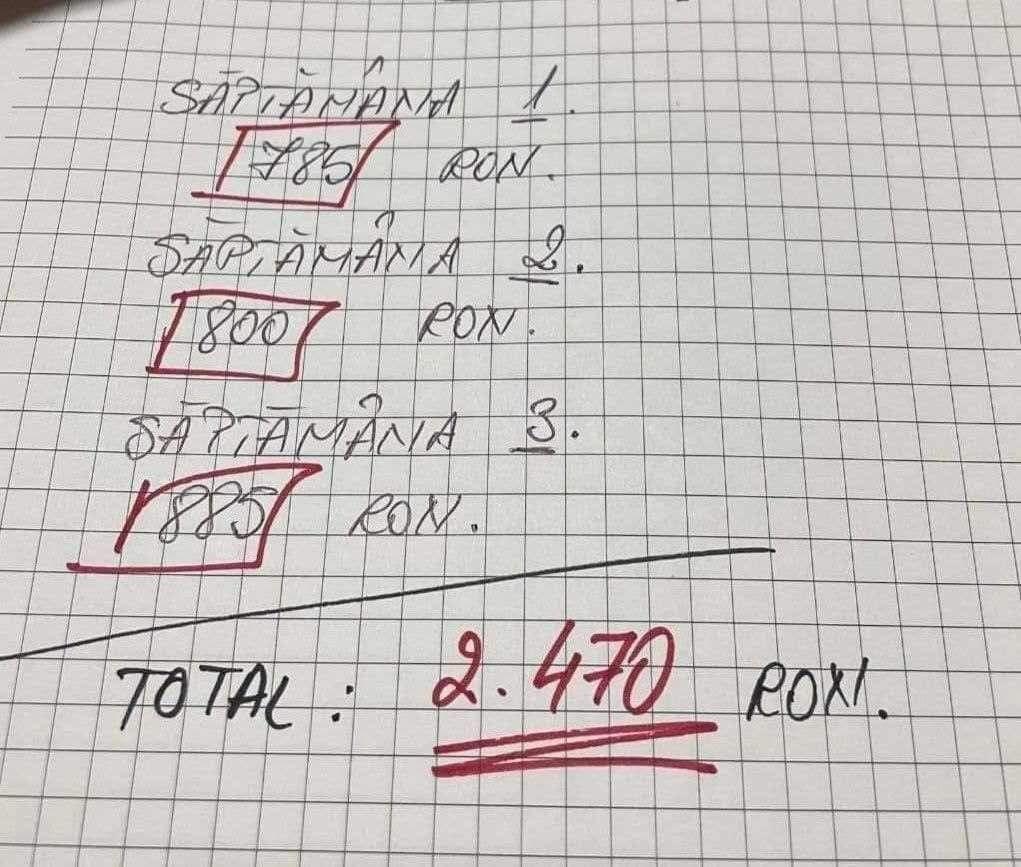 SĂPTĂMÂNA 1.
785 RON.
SĂPTĂMÂNA 2.
800 RON.
SĂPTĂMÂNA 3.
885 RON.
TOTAL : 2.470 RON.